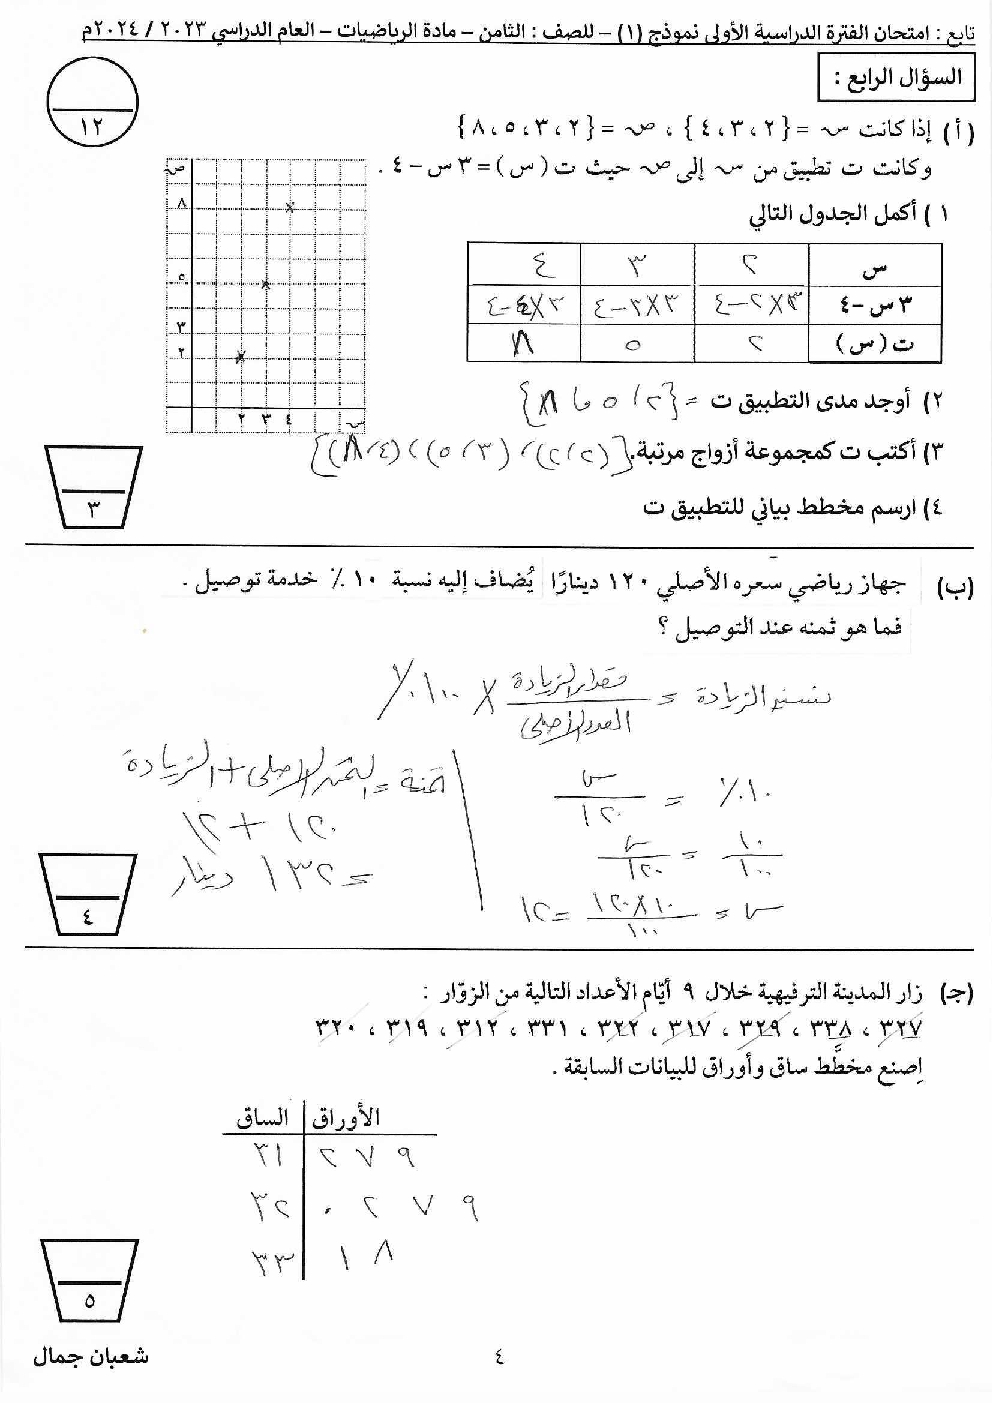 تابع : امتحان الفترة الدراسية الأولى نموذج (١) – للصف : الثامن – مادة الرياضيات – العام الدراسي ٢٠٢٣ / ٢٠٢٤م
السؤال الرابع :
١٢
(أ) إذا كانت سـ = {٢ ، ٣ ، ٤} ، صـ = {٢ ، ٣ ، ٥ ، ٨}
وكانت ت تطبيق من سـ إلى صـ حيث ت (س) = ٣س – ٤ .
١ ) أكمل الجدول التالي
س ٢ ٣ ٤
٣س – ٤ ٣×٢–٤ ٣×٣–٤ ٣×٤–٤
ت (س) ٢ ٥ ٨
صـ
٨
٥
٣
٢
٢ ٣ ٤ سـ
٢) أوجد مدى التطبيق ت = {٢ ، ٥ ، ٨}
٣) أكتب ت كمجموعة أزواج مرتبة. {(٢،٢) ، (٣،٥) ، (٤،٨)}
٤) ارسم مخطط بياني للتطبيق ت
٣
(ب) جهاز رياضي سعره الأصلي ١٢٠ دينارًا يُضاف إليه نسبة ١٠ ٪ خدمة توصيل .
فما هو ثمنه عند التوصيل ؟
نسبة الزيادة = مقدار الزيادة / العدد الأصلي × ١٠٠٪
١٠٪ = س / ١٢٠
١٠ / ١٠٠ = س / ١٢٠
س = ١٠×١٢٠ / ١٠٠ = ١٢
ثمنه = الثمن الأصلي + الزيادة
١٢٠ + ١٢
= ١٣٢ دينار
٤
(ج) زار المدينة الترفيهية خلال ٩ أيّام الأعداد التالية من الزوّار :
٣٢٧ ، ٣٣٨ ، ٣٢٩ ، ٣١٧ ، ٣٢٢ ، ٣٣١ ، ٣١٢ ، ٣١٩ ، ٣٢٠
اِصنع مخطَّط ساق وأوراق للبيانات السابقة .
الساق الأوراق
٣١ ٢ ٧ ٩
٣٢ ٠ ٢ ٧ ٩
٣٣ ١ ٨
٥
٤
شعبان جمال